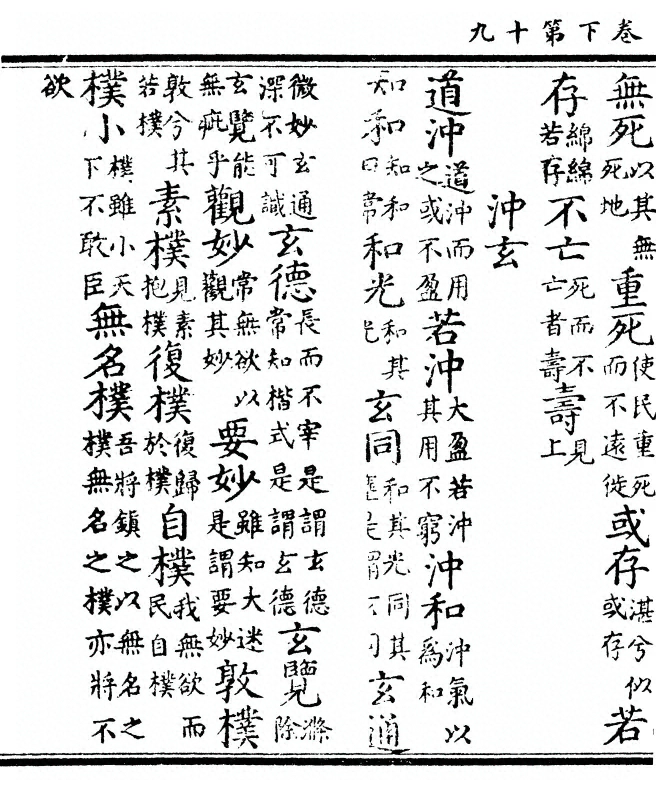 卷下第十九
無死以其無死地重死使民重死而不遠徙或存湛兮似或存若
存綿綿若存不亡死而不亡者壽壽見上
沖玄
道沖道沖而用之或不盈若沖大盈若沖其用不窮沖和沖氣以爲和
知和知和曰常和光和其光玄同和其光同其塵是謂玄同玄通
微妙玄通深不可識玄德長而不宰是謂玄德常知楷式是謂玄德玄覽滌除
玄覽能無疵乎觀妙常無欲以觀其妙要妙雖知大迷是謂要妙敦樸
敦兮其若樸素樸見素抱樸復樸復歸於樸自樸我無欲而民自樸
樸小樸雖小天下不敢臣無名樸吾將鎮之以無名之樸無名之樸亦將不
欲